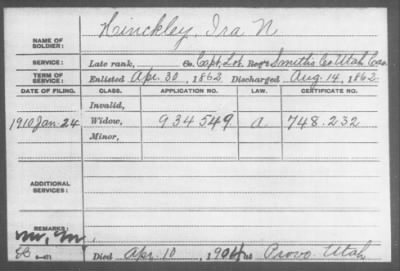 NAME OF SOLDIER: Hinckley, Ira N
SERVICE: Late rank, Co. Capt. Lot Reg't Smith's Co Utah Cav
TERM OF SERVICE: Enlisted Apr. 30, 1862 Discharged Aug. 14, 1862
DATE OF FILING. CLASS. APPLICATION NO. LAW. CERTIFICATE NO.
Invalid,
1910 Jan-24 Widow, 934549 a. 748.232
Minor,
ADDITIONAL SERVICES:
REMARKS:
Died Apr. 10, 1904 at Provo Utah